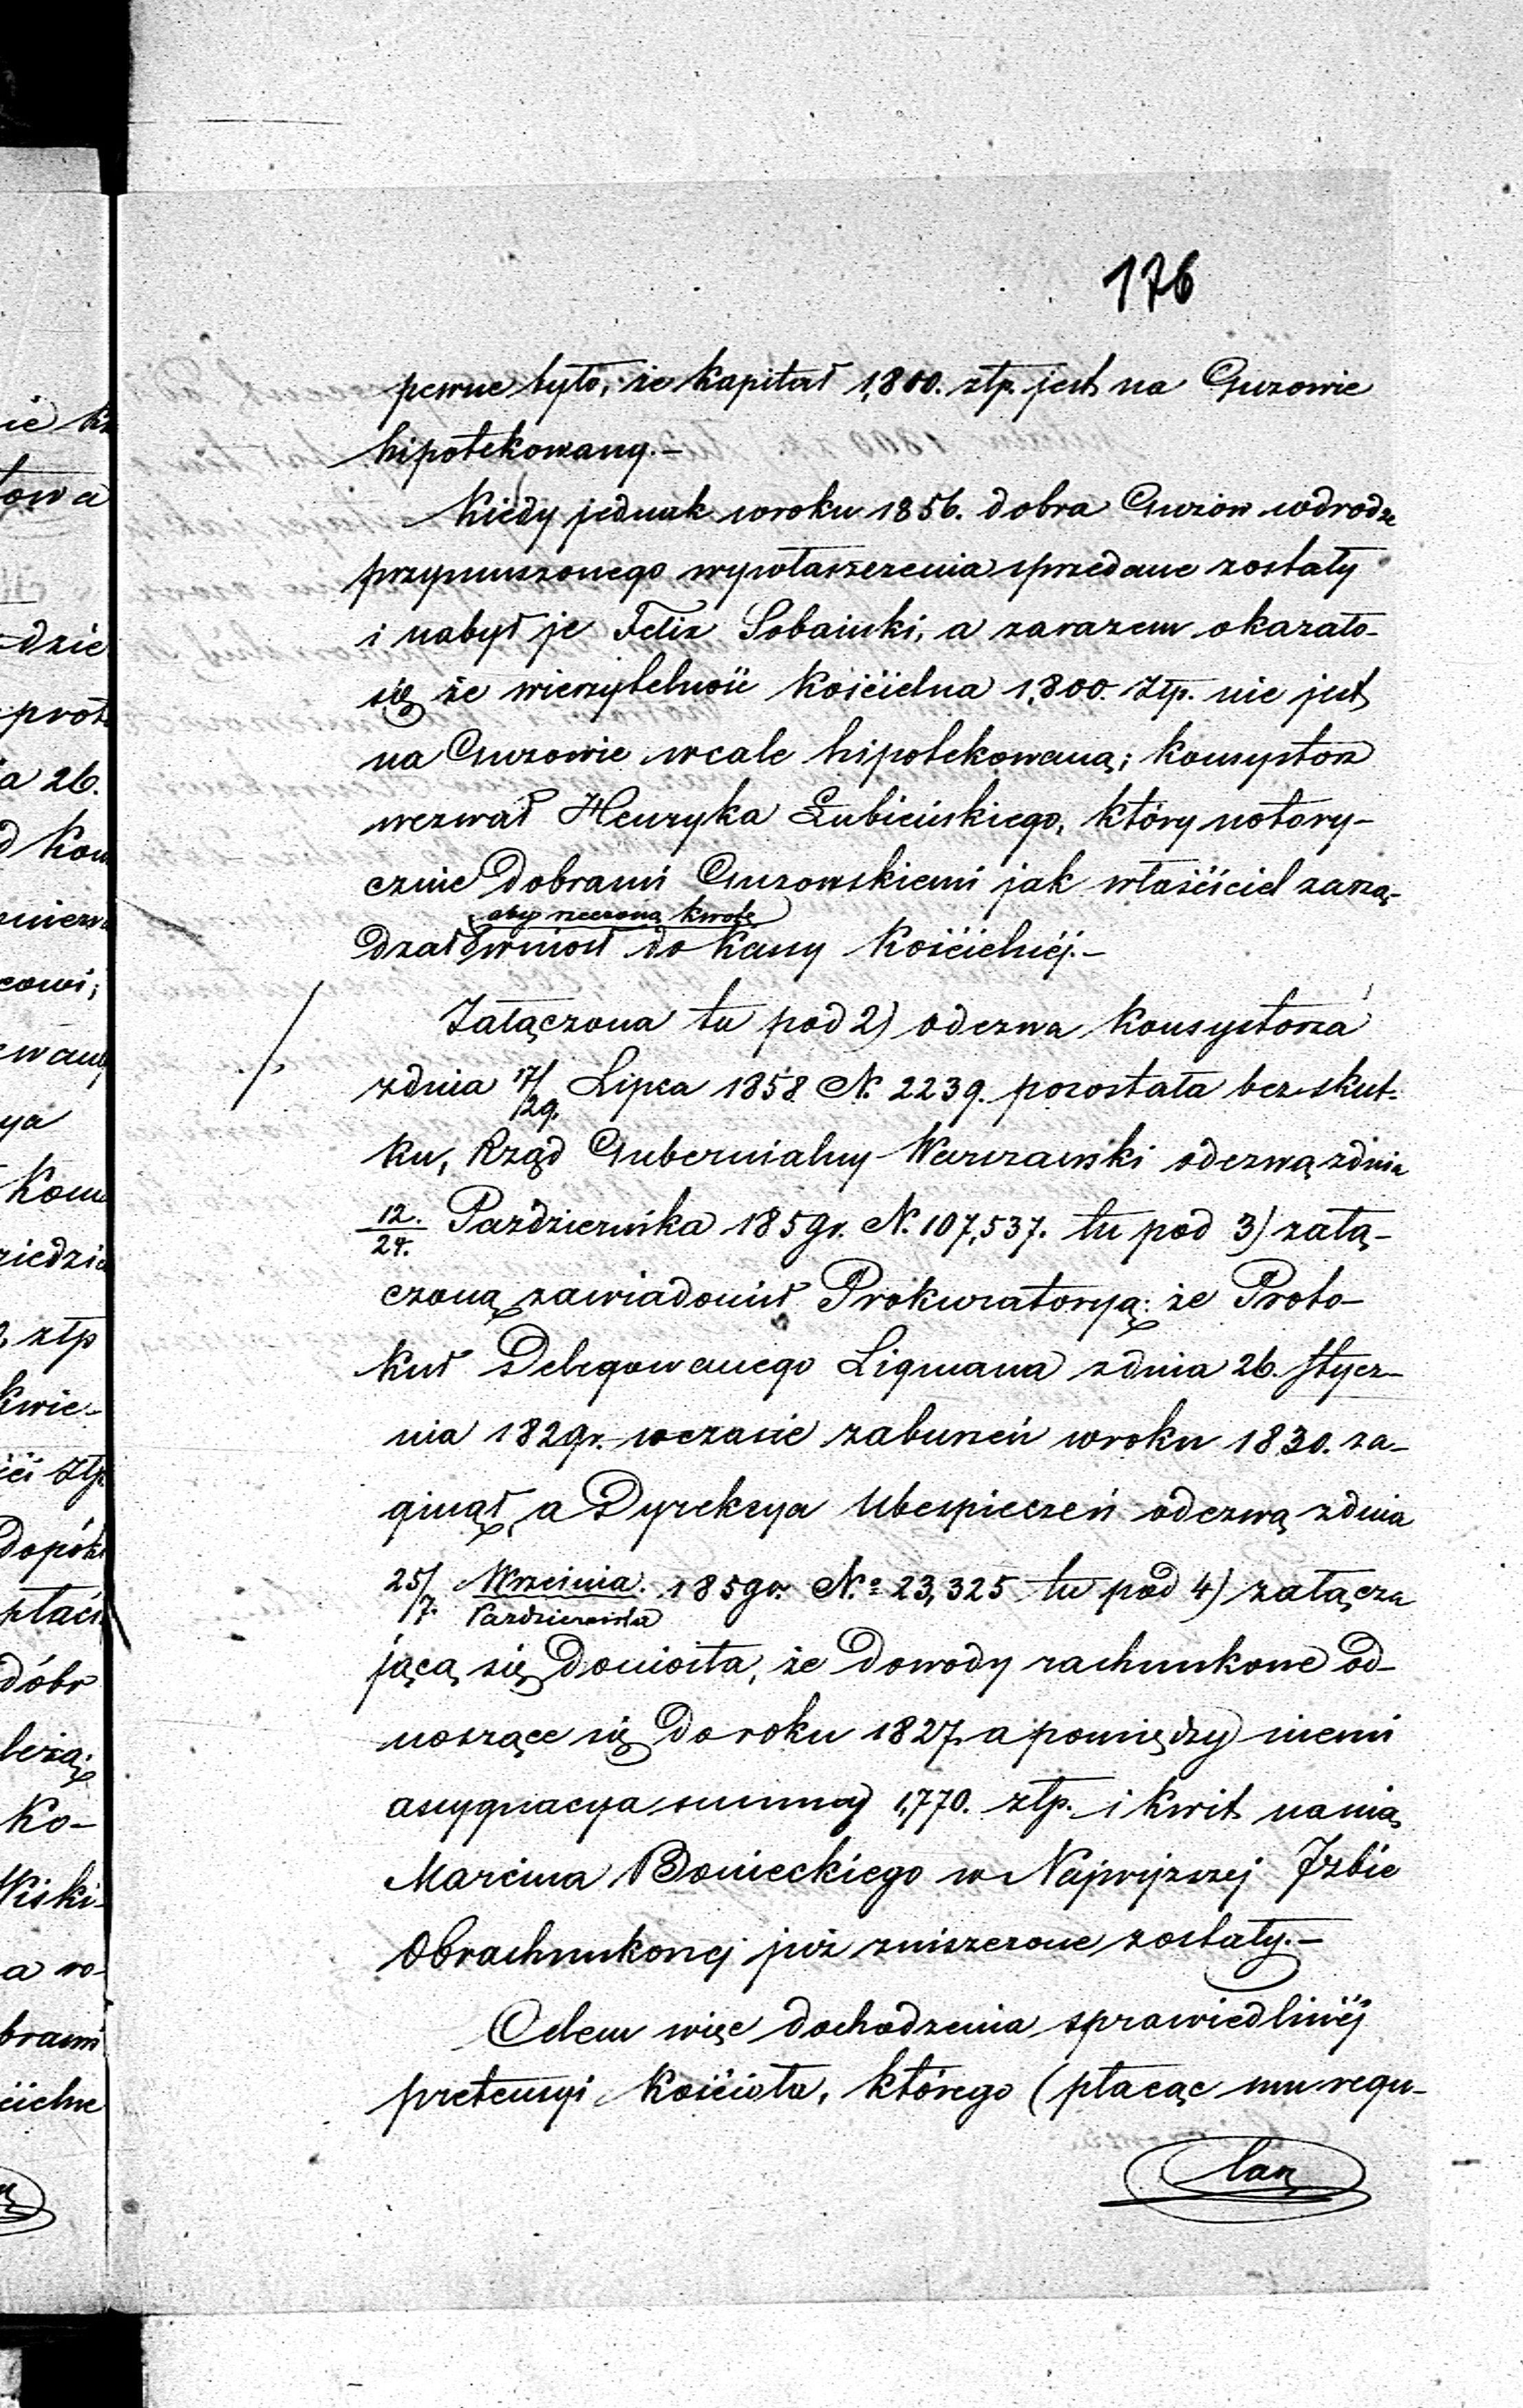 176
pewne było, że Kapitał 1,800. złp. jest na Guzowie
hipotekowany.-
Kiedy jednak wroku 1856. dobra Guzów wdrodze
przymuszonego wywłaszczenia sprzedane zostały
i nabył je Felix Sobański, a zarazem okazało-
się że wierzytelność Kościelna 1,800. Złp. nie jest
na Guzowie wcale hipotekowaną; Konsystorz
wezwał Henryka Łubieńskiego, który notory-
cznie Dobrami Guzowskiemi jak właściciel zarzą-
aby rzeczoną kwotę
dzał wniosł do Kassy Kościelnéj.-
Załączona tu pod 2) odezwa Konsystorza
zdnia 17/29. Lipca 1858 N. 2239. pozostała bezskut-
ku, Rząd Gubernialny Warszawski odezwą zdnia
12./24. Pazdziernika 1859r. N. 107,537. tu pod 3) załą-
czoną zawiadomił Prokuratoryą: że Proto-
kuł Delegowanego Ligmana zdnia 26. Stycz-
nia 1829r. wczasie zaburzeń wroku 1830. za-
ginął, a Dyrekcya Ubezpieczeń odezwą zdnia
25/7. Września./Pazdziernika 1859r. No 23,325 tu pod 4) załącza
jącą się doniosła, że Dowody rachunkowe od-
noszące się do roku 1827. a pomiędzy niemi
assygnacya summy 1,770. złp. i kwit na nią
Marcina Bonieckiego w Najwyższej Izbie
Obrachunkowej już zniszczone zostały.-
Celem więc dochodzenia sprawiedliwéj
pretensyi Kościoła, którego (płacąc mu regu-
larn